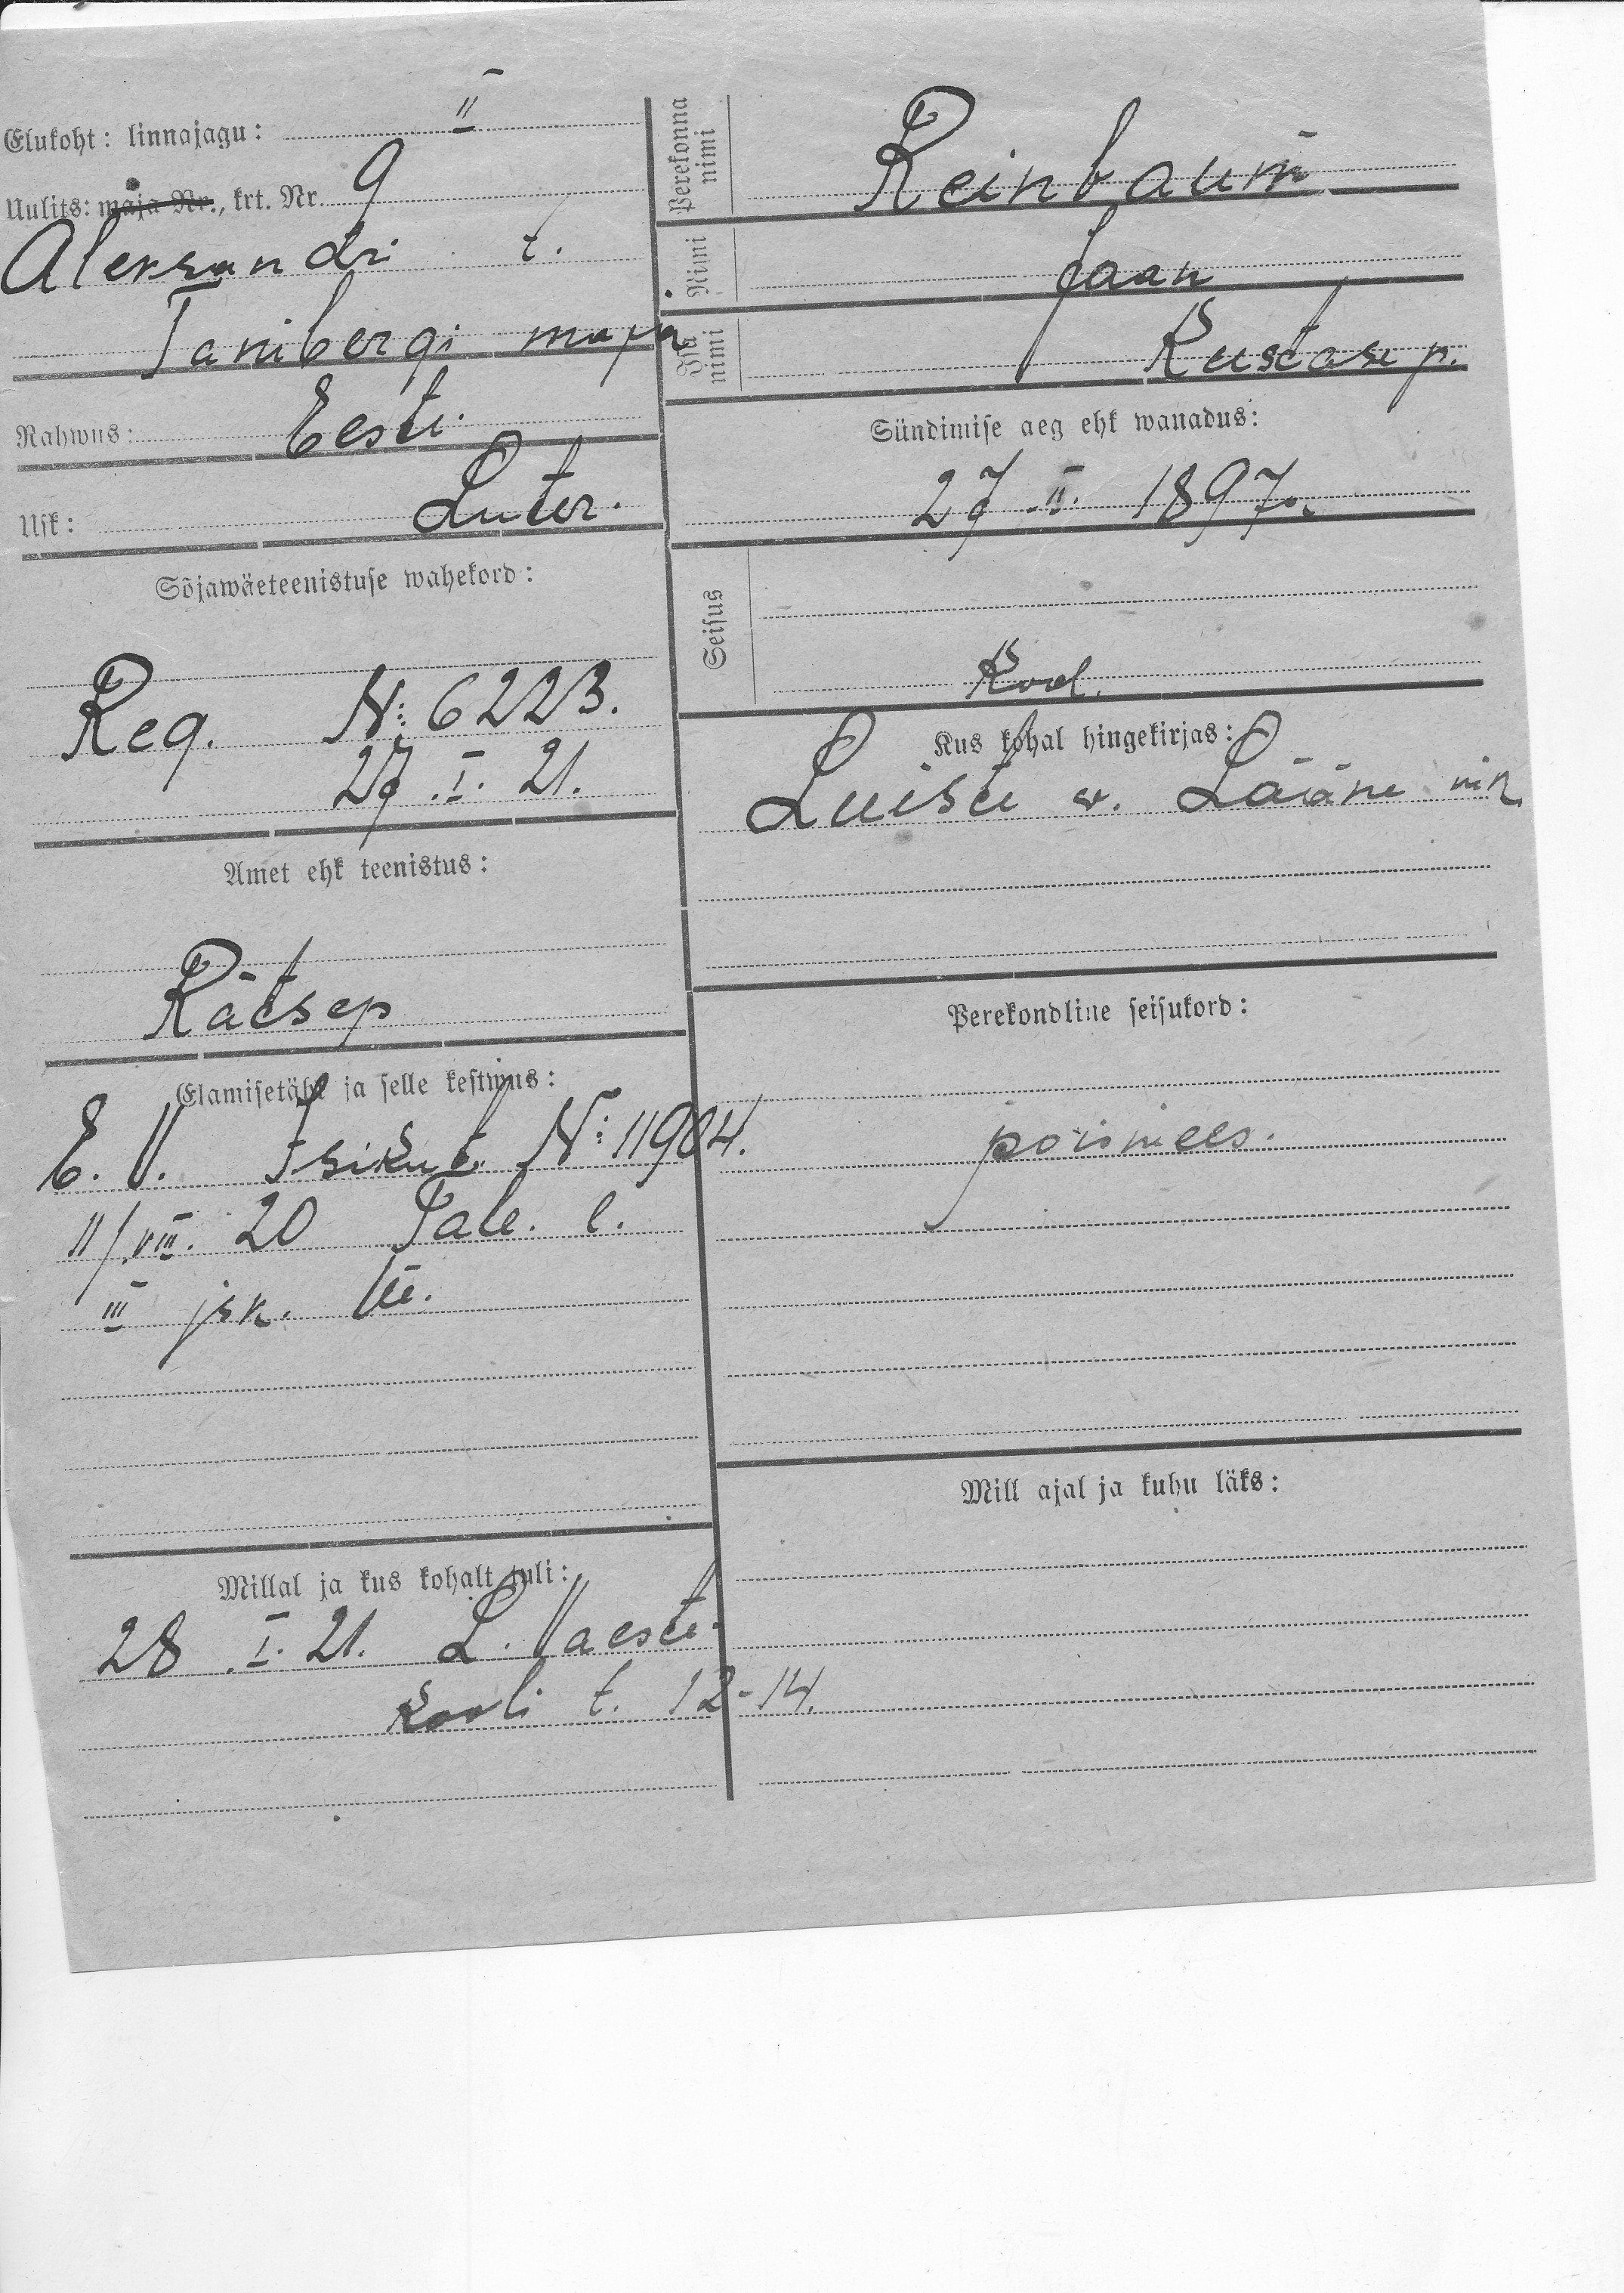 Elukoht: linnajagu: II
Uulits: maja Nr., krt. Nr. 9
Aleksandri t.
Tambergi maja
Rahwus: Eesti
Usk: Luter.
Sõjawäeteenistuse wahekord:
Reg. N: 6223.
27. I. 21.
Amet ehk teenistus:
Rätsep
Elamisetäht ja selle kestwus:
E. V. Isiku t. N: 11904.
11/VIII. 20 Tall. l.
III jsk.
Millal ja kus kohalt tuli:
28. I. 21. L.
Kooli t. 12-14.
Perekonna nimi
Reinbaum
Nimi
Jaan
Isa nimi
Kustase p.
Sündimise aeg ehk wanadus:
27. II. 1897.
Seisus
Kod.
Kus kohal hingekirjas:
Luiste w. Lääne mk
Perekondline seisukord:
poismees.
Mill ajal ja kuhu läks: